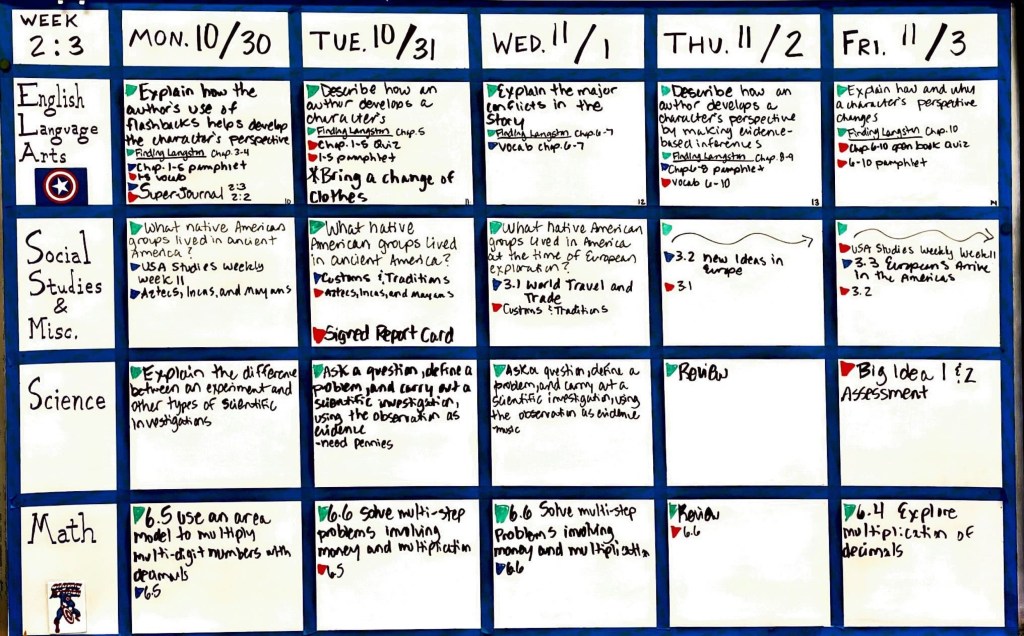 WEEK
2:3
MON. 10/30
TUE. 10/31
WED. 11/1
THU. 11/2
FRI. 11/3
English
Language
Arts
Explain how the
author's use of
flashbacks helps develop
the character's perspective
Finding Langston Chap. 3-4
Chap. 1-5 pamphlet
1-5 vocab
Super Journal 2:3
2:2
10
Describe how an
author develops a
character's
Finding Langston Chap. 5
Chap. 1-5 Quiz
1-5 pamphlet
*Bring a change of
clothes
11
Explain the major
conflicts in the
story
Finding Langston Chap. 6-7
Vocab Chap. 6-7
12
Describe how an
author develops a
character's perspective
by making evidence-
based inferences
Finding Langston Chap. 8-9
Chap 6-8 pamphlet
Vocab 6-10
13
Explain how and why
a character's perspective
changes
Finding Langston Chap. 10
Chap 6-10 open book quiz
6-10 pamphlet
14
Social
Studies
&
Misc.
What native American
groups lived in ancient
America?
USA Studies Weekly
week 11
Aztecs, Incas, and Mayans
What native
American groups lived
in ancient America?
Customs & Traditions
Aztecs, Incas, and Mayans
Signed Report Card
What Native American
groups lived in America
at the time of European
exploration?
3.1 World Travel and
Trade
Customs & Traditions
3.2 New Ideas in
Europe
3.1
USA Studies Weekly Week 11
3.3 European's Arrive
In the Americas
3.2
Science
Explain the difference
between an experiment and
other types of scientific
investigations
Ask a question, define a
poblem, and carry out a
scientific investigation,
using the observation as
evidence
-need pennies
Ask a question, define a
problem, and carry out a
scientific investigation, using
the observation as evidence
-music
Review
Big Idea 1 & 2
Assessment
Math
6.5 use an area
model to multiply
multi-digit numbers with
decimals
6.5
6.6 Solve multi-step
problems involving
money and multiplication
6.5
6.6 Solve multi-step
Problems involving
money and multiplication
6.6
Review
6.6
6.4 Explore
multiplication of
decimals